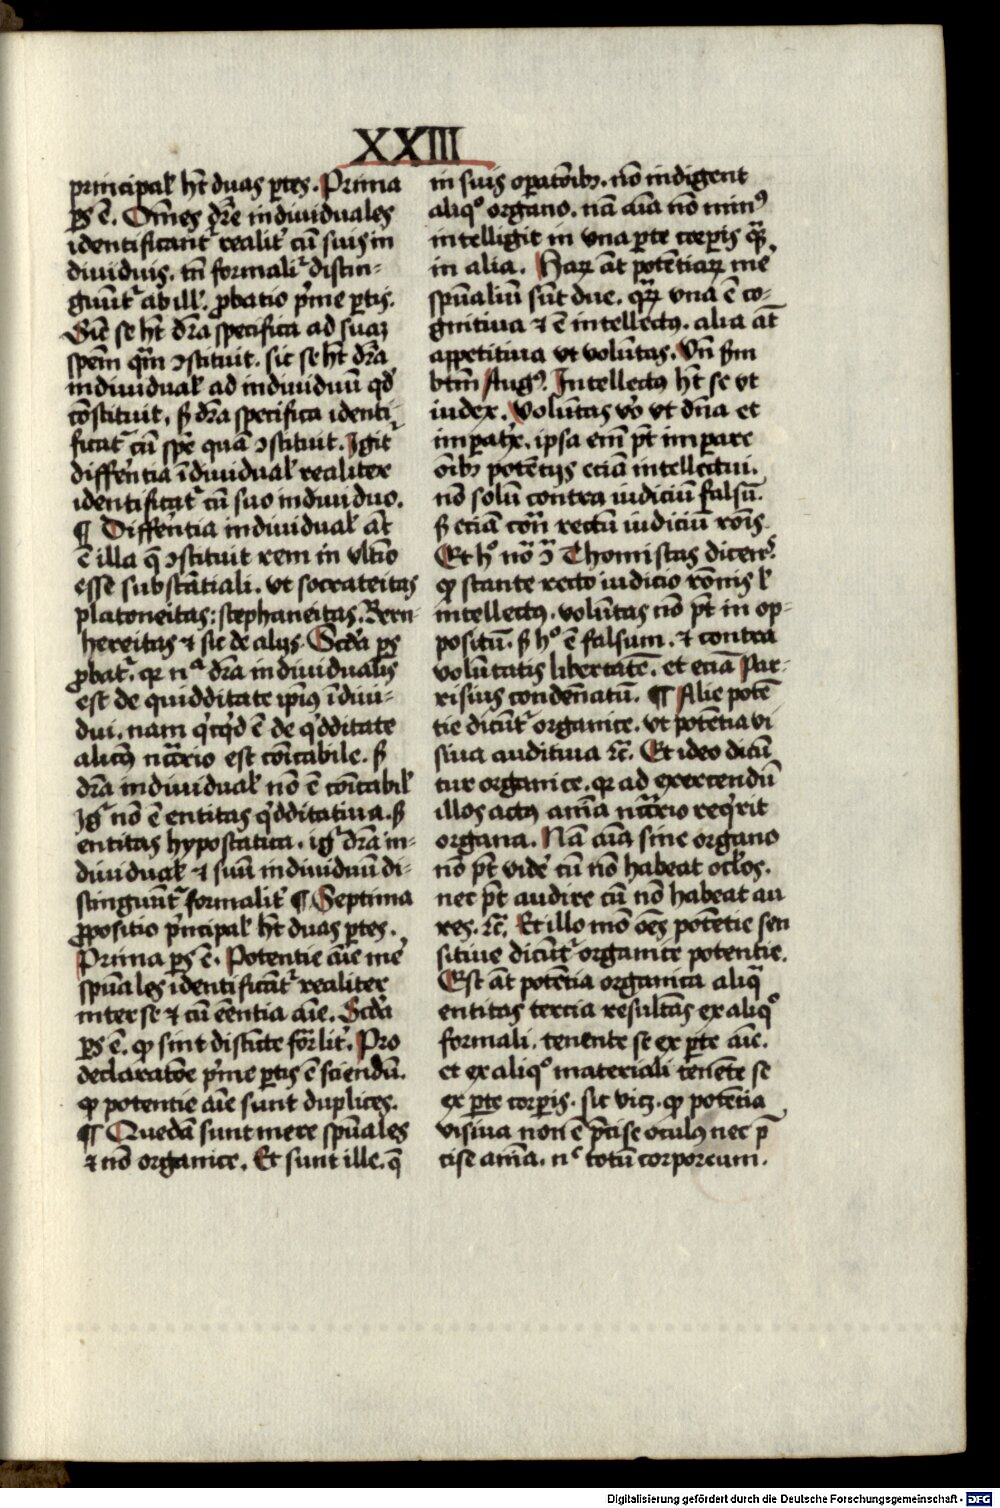 XXIII
principal᷑ hr̄t duas ꝑtes. Prima
ps ē. Om̄es dr̄e indiuiduales
identificant᷑ realit᷑ cū suis in
diuiduis. tn̄ formalit᷑ distin-
guūt᷑ ab ill᷑. ꝓbatio pͥme ꝑtis.
Sic̄ se hꝫt dr̄a specifica ad suaꝫ
spēm quā ↄstituit. sic se hꝫt dr̄a
indiuidual᷑ ad indiuiduū qd᷑
cōstituit, sꝫ dr̄a specifica identi-
ficat᷑ cū spē quā ↄstituit. Igit᷑
differ̄ntia īdiuidual᷑ realiter
identificat᷑ cū suo indiuiduo.
¶ Differ̄ntia indiuidual᷑ āt
ē illa q̄ ↄstituit rem in vltīo
esse substātiali. vt socrateitas
platoneitas: stephaneitas. Bern-
hereitas ⁊ sic de alijs. Scd̄a ps
ꝓbat᷑. qꝛ nᵃ dr̄a indiuidualis
est de quidditate ip̄iꝰ īdiui-
dui. nam qͥcqͥd ē de qͥdditate
alicꝰ nc̄c̄rio est cōicabile. sꝫ
dr̄a indiuidual᷑ nō ē cōicabil᷑
Igᷣ nō ē entitas qͥdditatiua. sꝫ
entitas hypostatica. igᷣ dr̄a in-
diuidual᷑ ⁊ suū indiuiduū di-
stinguūt᷑ formalit᷑ ¶ Septima
ꝓpositio pͥncipal᷑ hꝫt duas ꝑtes.
Prima ps ē. Potentie aīe me᷑
spūales identificāt᷑ realiter
inter se ⁊ cū eēntia aīe. Scd̄a
ps ē. ꝙ sint distīcte for̄lit᷑. Pro
declaratōe pͥme ꝑtis ē sciendū.
ꝙ potentie aīe sunt duplices.
¶ Quedā sunt mere spūales
⁊ nō organice. Et sunt ille. q̄
in suis oꝑatōibꝫ. nō indigent
aliqͦ organo. nā aīa nō minꝰ
intelligit in vna ꝑte corꝑis qᷓꝫ
in alia. Haꝝ āt potētiaꝝ me᷑
spūaliū sūt due. qꝝ vna ē co-
gnitiua ⁊ ē intellectꝰ. alia āt
appetitiua vt volūtas. Vn̄ sm̄
btm̄ Augꝰ. Intellectꝰ hꝫt se vt
iudex. Voluntas v̊o vt dn̄a et
imꝑatͥx. ipsa em̄ pt̄ imperare
oībꝫ potētijs eciā intellectui.
nō solū contra iudiciū falsū.
sꝫ eciā con̄ rectū iudiciū rōis.
Et hͦ nōᷓ ↄᷓ Thomistas dicen̄ᵗˢ
ꝙ stante recto iudicio rōnis l᷑
intellectꝰ. volūtas nō pt̄ in op-
positū. sꝫ hͦ ē falsum. ⁊ contra
volūtatis libertatē. et eciā Par-
risius condēnatū. ¶ Alie potē
tie dicūt᷑ organice. vt potētia vi
siua auditiua ⁊c̄. Et ideo dicū
tur organice. qꝛ ad exercendū
illos actꝰ aīma nc̄c̄rio reqͥrit
organa. Nā aīa sine organo
nō pt̄ vide᷑ cū nō habeat ocl᷑os.
nec pt̄ audire cū nō habeat au
res. ⁊c̄. Et illo mō oēs potētie sen
sitiue dicūt᷑ organice potentie.
Est āt potētia organica aliqᷓ
entitas tercia resultās ex aliqͦ
formali. tenente se ex ꝑte aīe.
et ex aliqͦ materiali tenēte se
ex ꝑte corꝑis. sic vicꝫ. ꝙ potētia
visiua non ē p̄cise oculꝰ nec p̄
cise aīma. nᶜ totū corporeum.
Digitalisierung gefördert durch die Deutsche Forschungsgemeinschaft - DFG